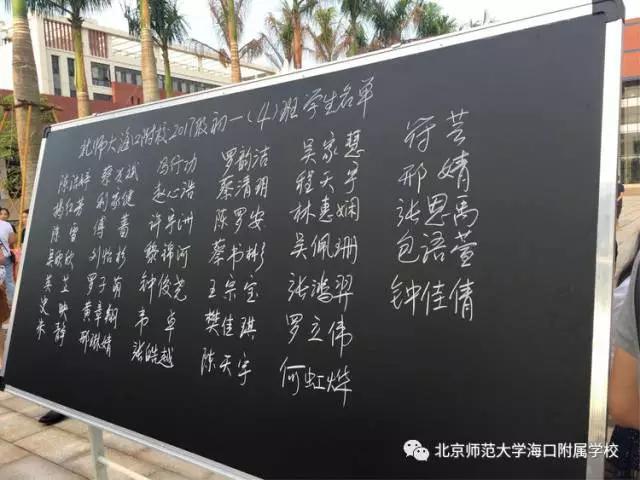 北师大海口附校2017级初一(4)班学生名单
陈洪婷 蔡龙斌 冯行功 罗韵洁 吴家慧 符芸
杨红芳 赵心浩 蔡清明 程天宇 邢婧
陈雪 傅蔷 许昇洲 陈罗安 林惠娴 张思禹
吴欣欣 刘怡杉 黎谛河 蔡书彬 吴佩珊 包语萱
吴芷 罗子萌 钟俊尧 王宗宝 张鸿羿 钟佳倩
史映 黄章翔 韦卓 樊佳琪 罗立伟
朱静 邢琳婧 张皓越 陈天宇 何虹烨
北京师范大学海口附属学校